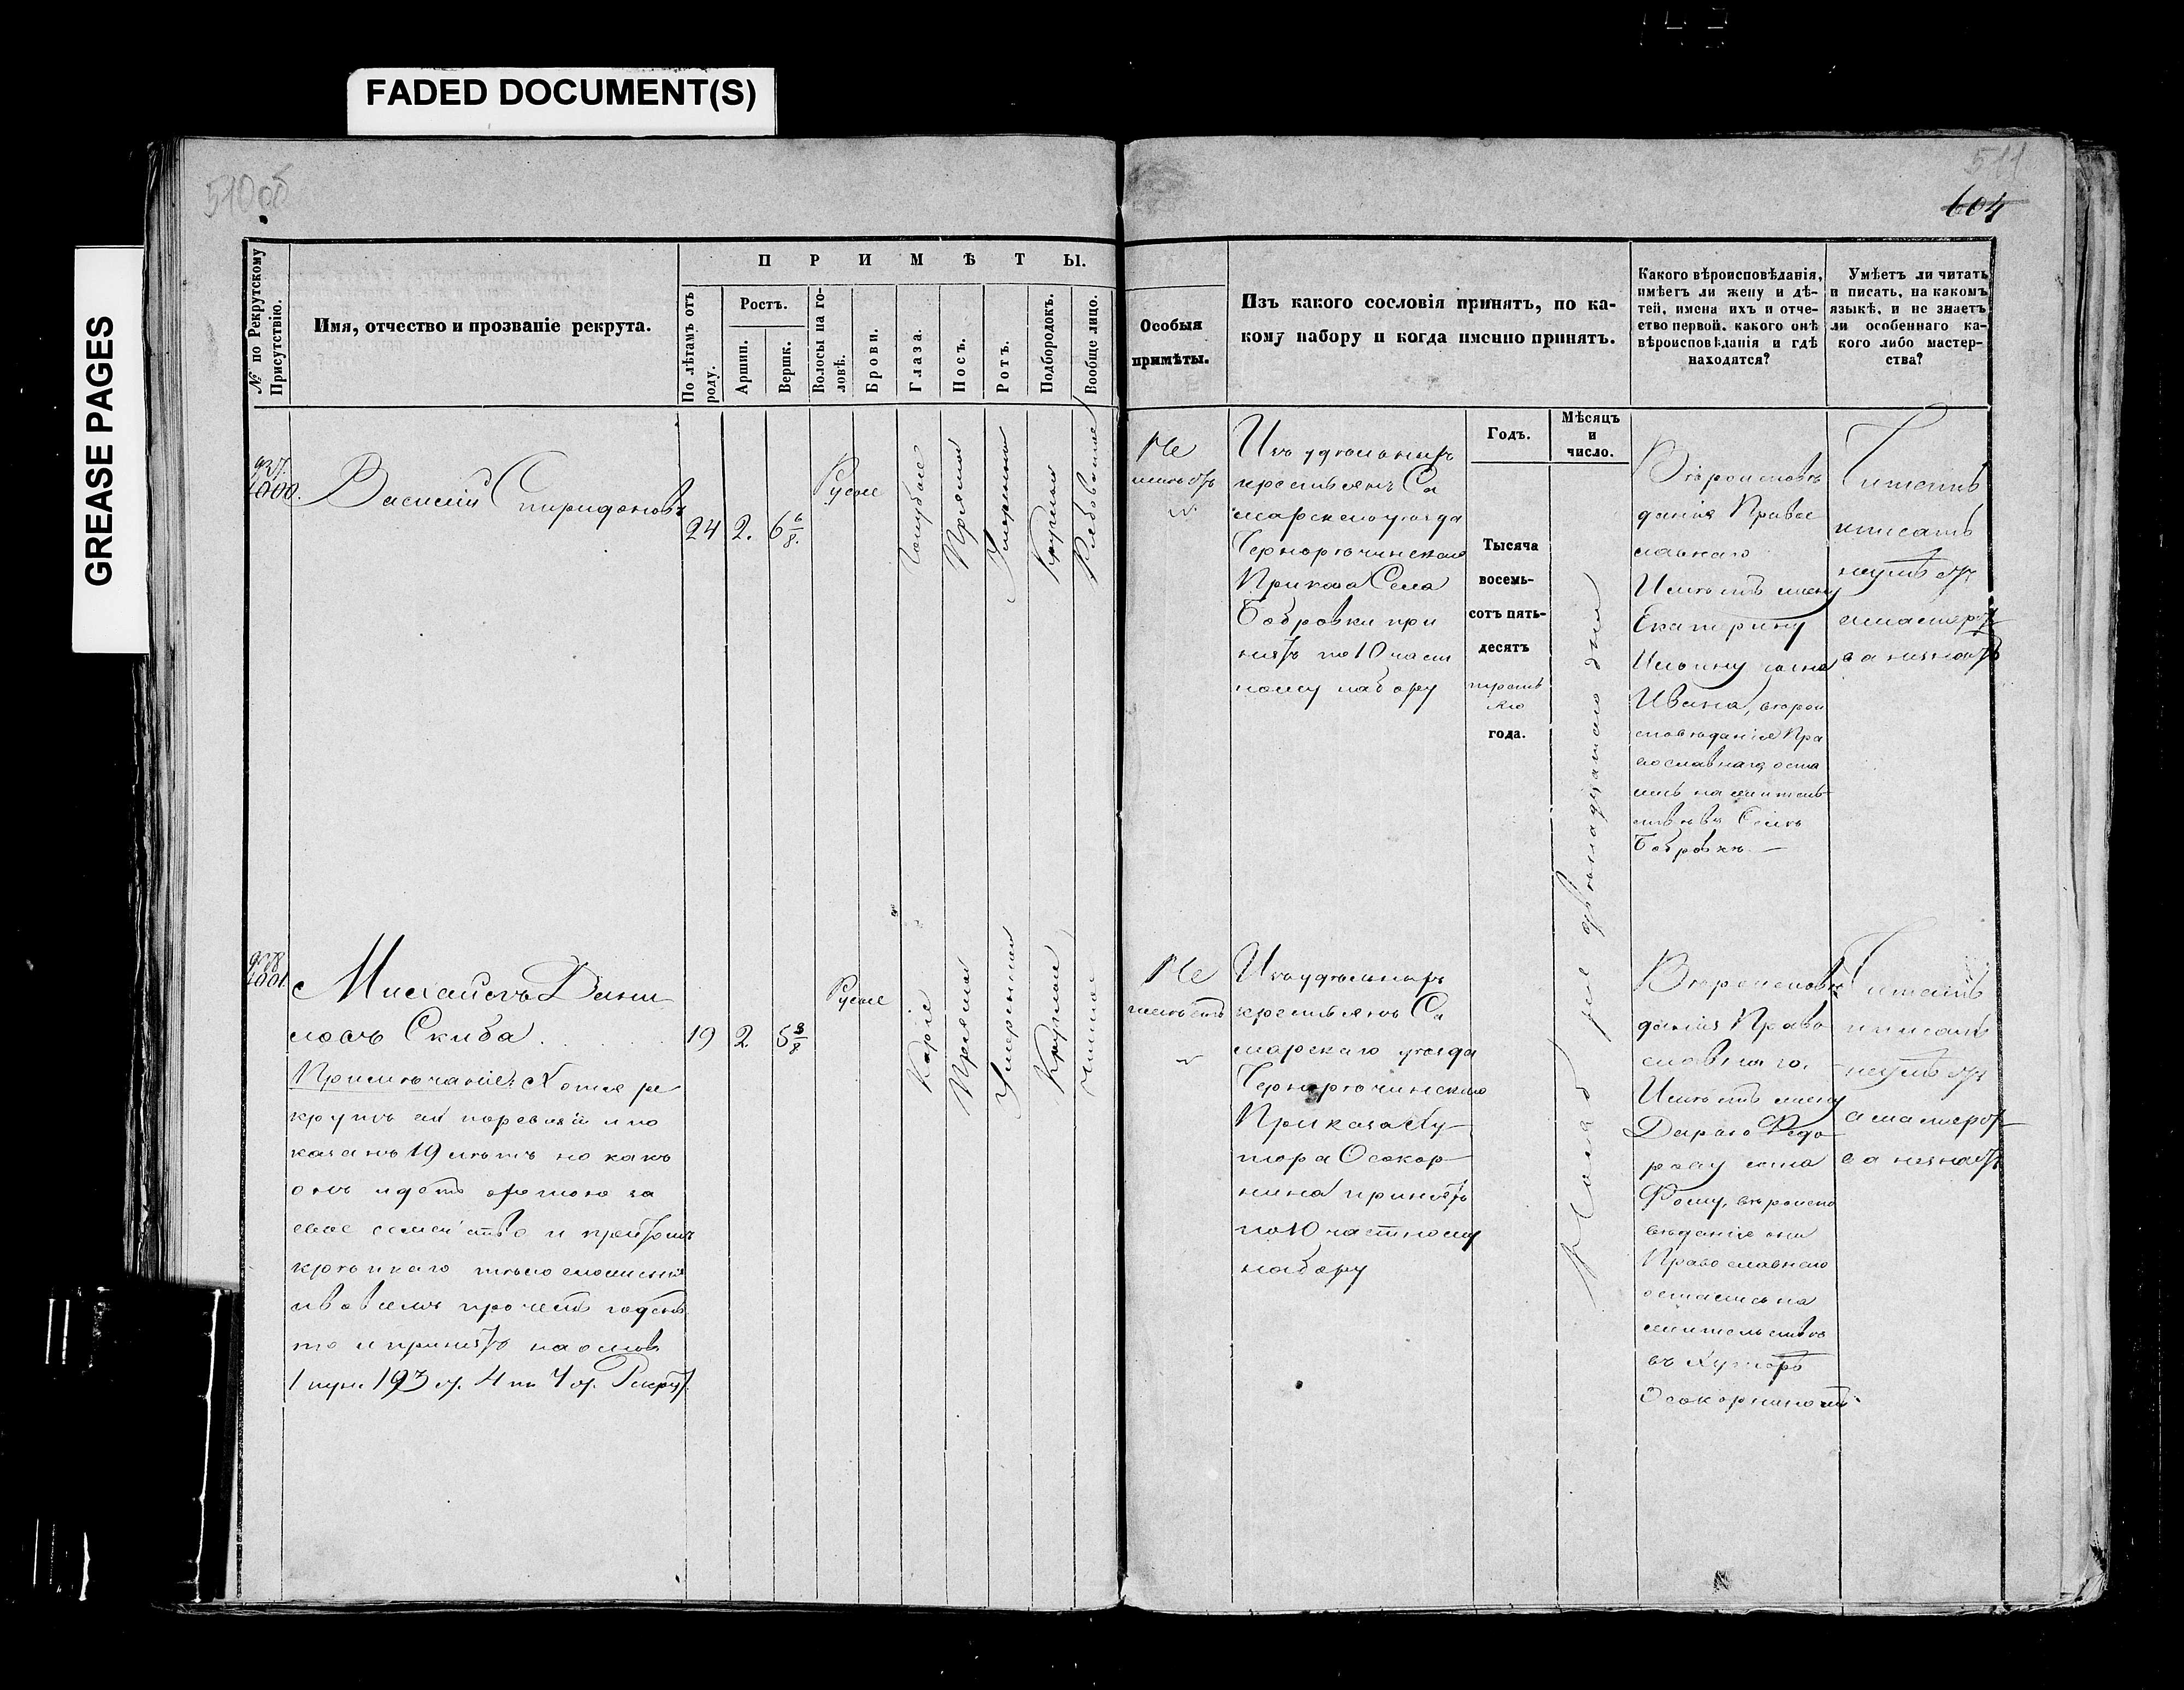 FADED DOCUMENT(S)
GREASE PAGES
510об
511
604
№ по Рекрутскому Присутствію.
Имя, отчество и прозваніе рекрута.
ПРИМѢТЫ.
По лѣтамъ отъ роду.
Ростъ.
Аршин.
Вершк.
Волосы на головѣ.
Брови.
Глаза.
Носъ.
Ротъ.
Подбородокъ.
Вообще лицо.
Особыя
примѣты.
Изъ какого сословія принятъ, по ка-
кому набору и когда именно принятъ.
Какого вѣроисповѣданія,
имѣетъ ли жену и дѣ-
тей, имена ихъ и отче-
ство первой, какого онѣ
вѣроисповѣданія и гдѣ
находятся?
Умѣетъ ли читать
и писать, на какомъ
языкѣ, и не знаетъ
ли особеннаго ка-
кого либо мастер-
ства?
Годъ.
Мѣсяцъ
и
число.
1000.
Василій Спиридоновъ
24
2.
6 6/8.
Русые
Голубые
Прямый
Умѣренный
Круглый
Рябоватое
Не
имѣетъ
Изъ удѣльныхъ
крестьянъ Са
марскаго уѣзда
Чернорѣчинскаго
Приказа Села
Бобровки при
нятъ по 10 част
ному набору
Тысяча
восемь-
сотъ пять-
десятъ
года.
Вѣроисповѣ
данія Право
славнаго
Имѣетъ жену
Екатерину
Ильину сына
Ивана, вѣрои
сповѣданія Пра
вославнаго оста
лись на житель
ствѣ въ Селѣ
Бобровкѣ
Читать
и писать
неумѣетъ
а мастерст
ва незнаетъ
1001
Михайлъ Дани
ловъ Скиба
19
2.
5 3/8
Русые
Каріе
Прямый
Умѣренный
Круглый
Чистое
Примѣчаніе: Хотя ре
крутъ сей по ревизіи и по
казанъ 19 лѣтъ но какъ
онъ идетъ охотою за
свое семейство и притомъ
крѣпкаго тѣлосложенія
и во всемъ прочемъ годенъ
то и принятъ на основ
1 пун. 193 ст. 4 пр. 4 ст. Рекрут.
Не
имѣетъ
Изъ удѣльныхъ
крестьянъ Са
марскаго уѣзда
Чернорѣчинскаго
Приказа Ху
тора Осокор
нина принятъ
по 10 частному
набору
Вѣроисповѣ
данія Право
славнаго.
Имѣетъ жену
Дарью Федо
рову сына
Фому, вѣроиспо
вѣданія они
Православнаго
остались на
жительствѣ
въ Хуторѣ
Читать
и писать
неумѣетъ
а мастерст
ва незнаетъ